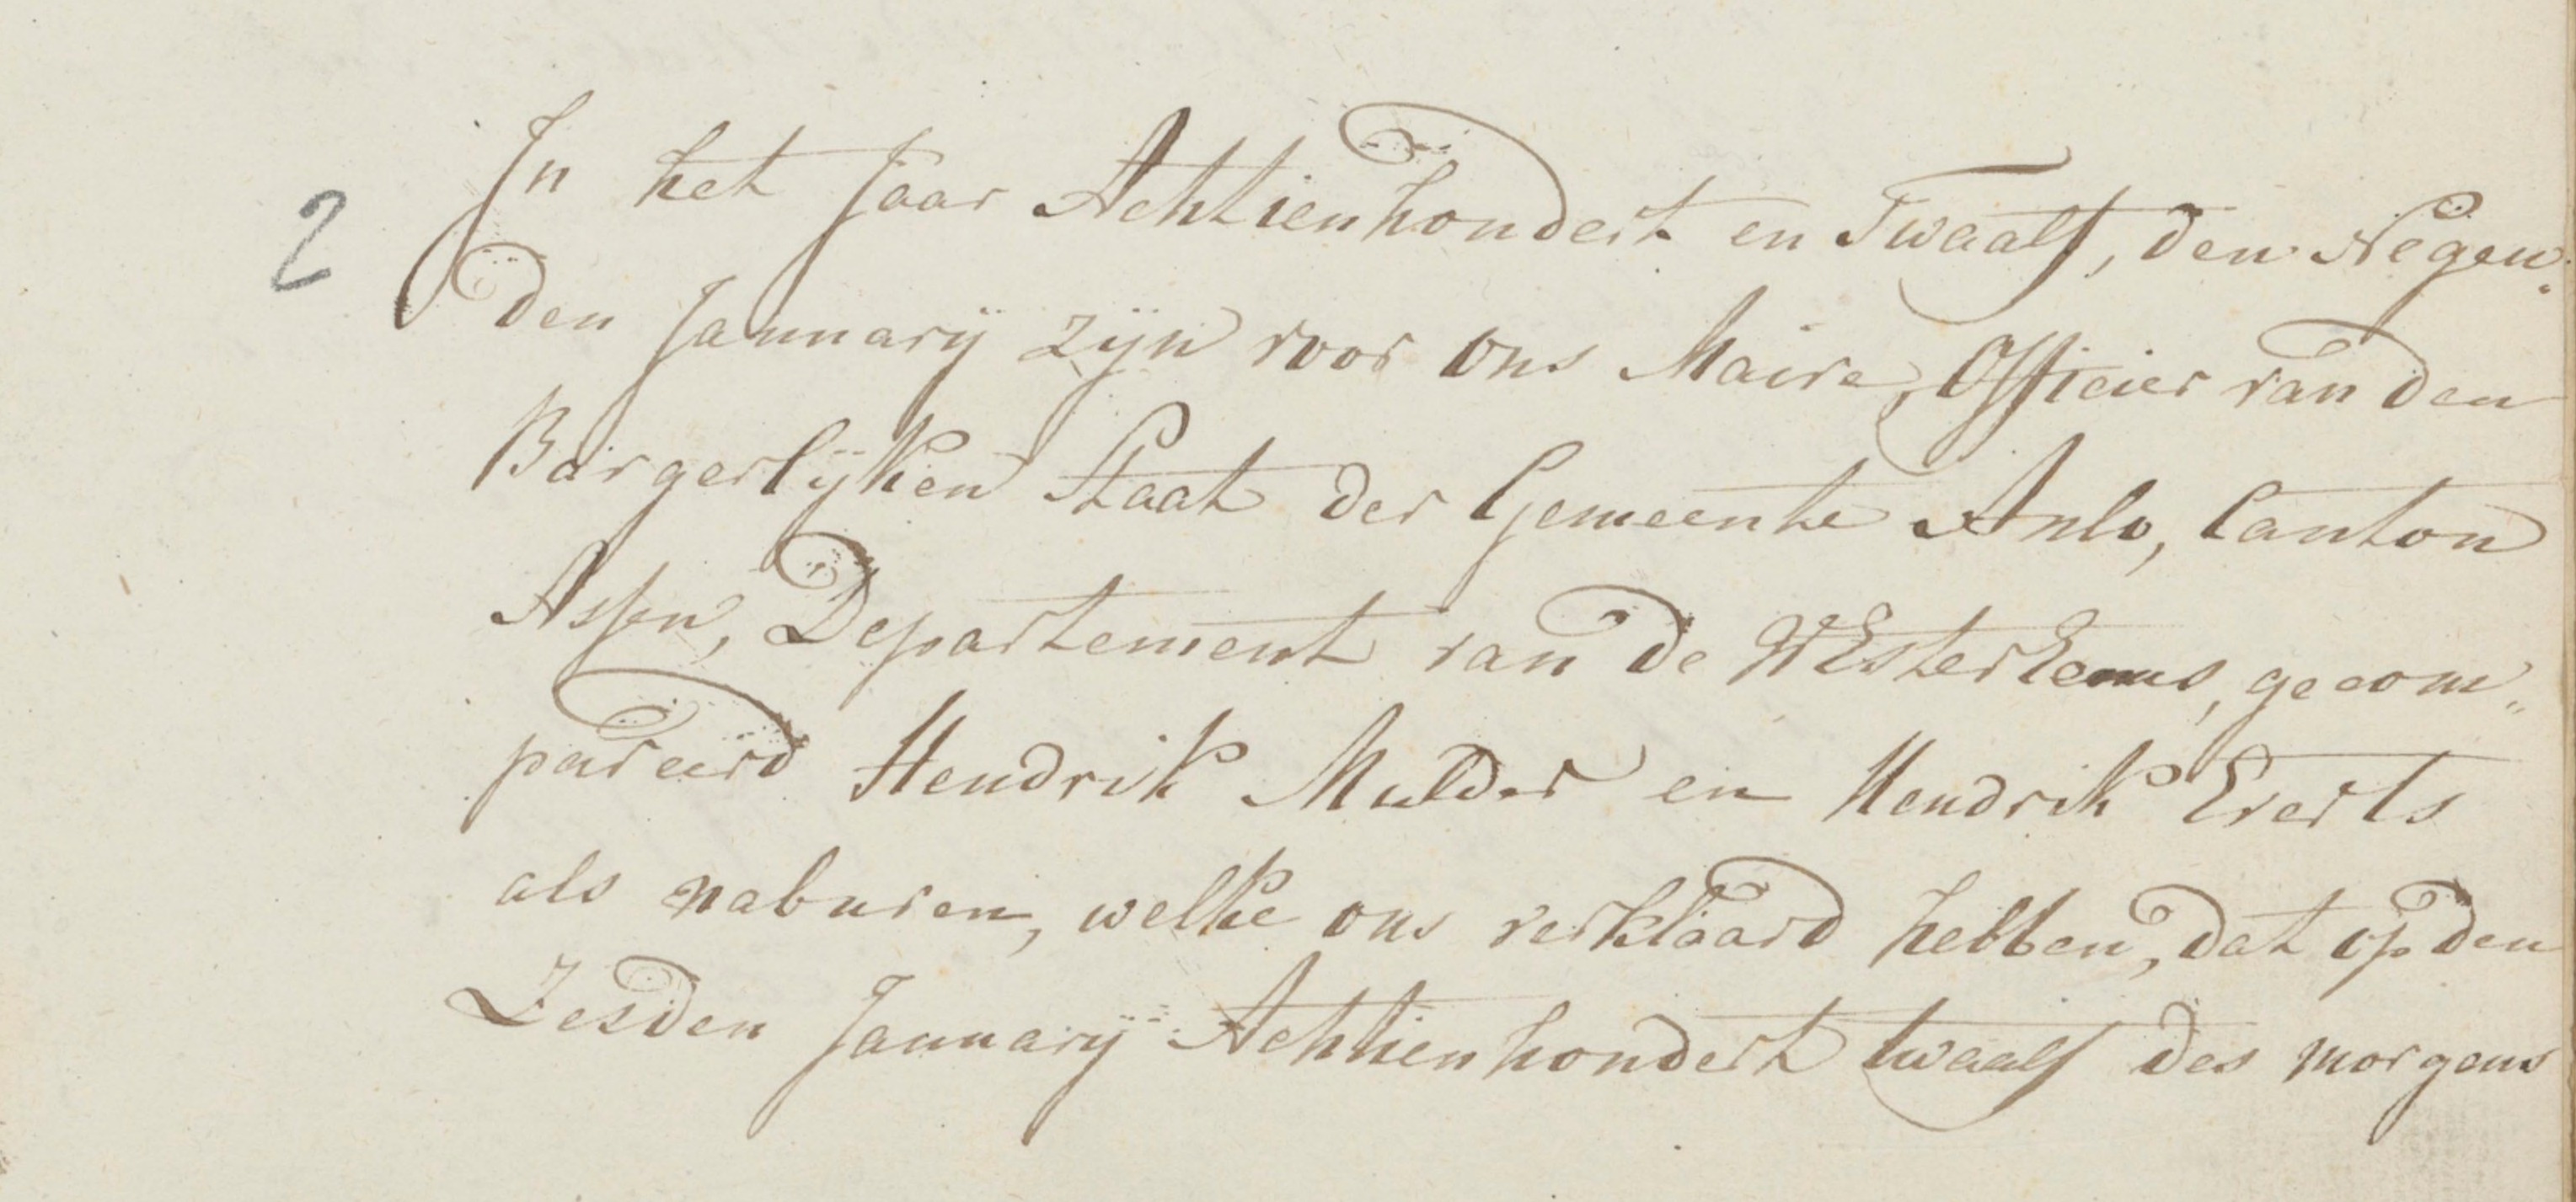 2
In het Jaar Achtienhondert en Twaalf, den Negen„
den Januarij zijn voor ons Maire, Officier van den
Burgerlijken Staat der Gemeente Anlo, Canton
Assen, Departement van de WEsterEems, gecom„
pareerd Hendrik Mulder en Hendrik Everts
als naburen, welke ons verklaard hebben, dat op den
Zesden Januarij Achtienhondert twaalf des morgens